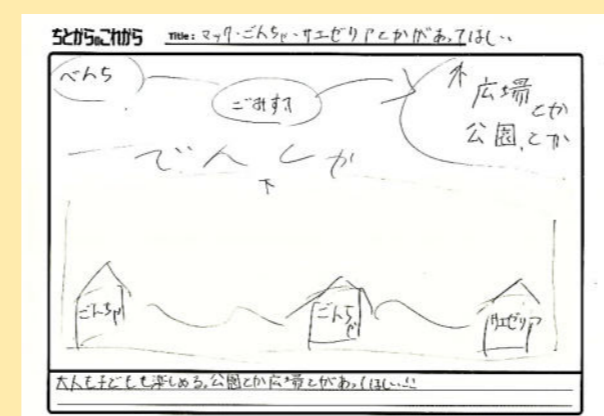 ちとからのこれから
Title: マック・ごんちゃ・サエゼリアとかがあってほしい
べんち
ごみすて
外 広場とか
公園とか
でんしゃ
下
ごんちゃ
ごんちゃ
サエゼリア
大人も子どもも楽しめる。公園とか広場とかがあってほしい!!